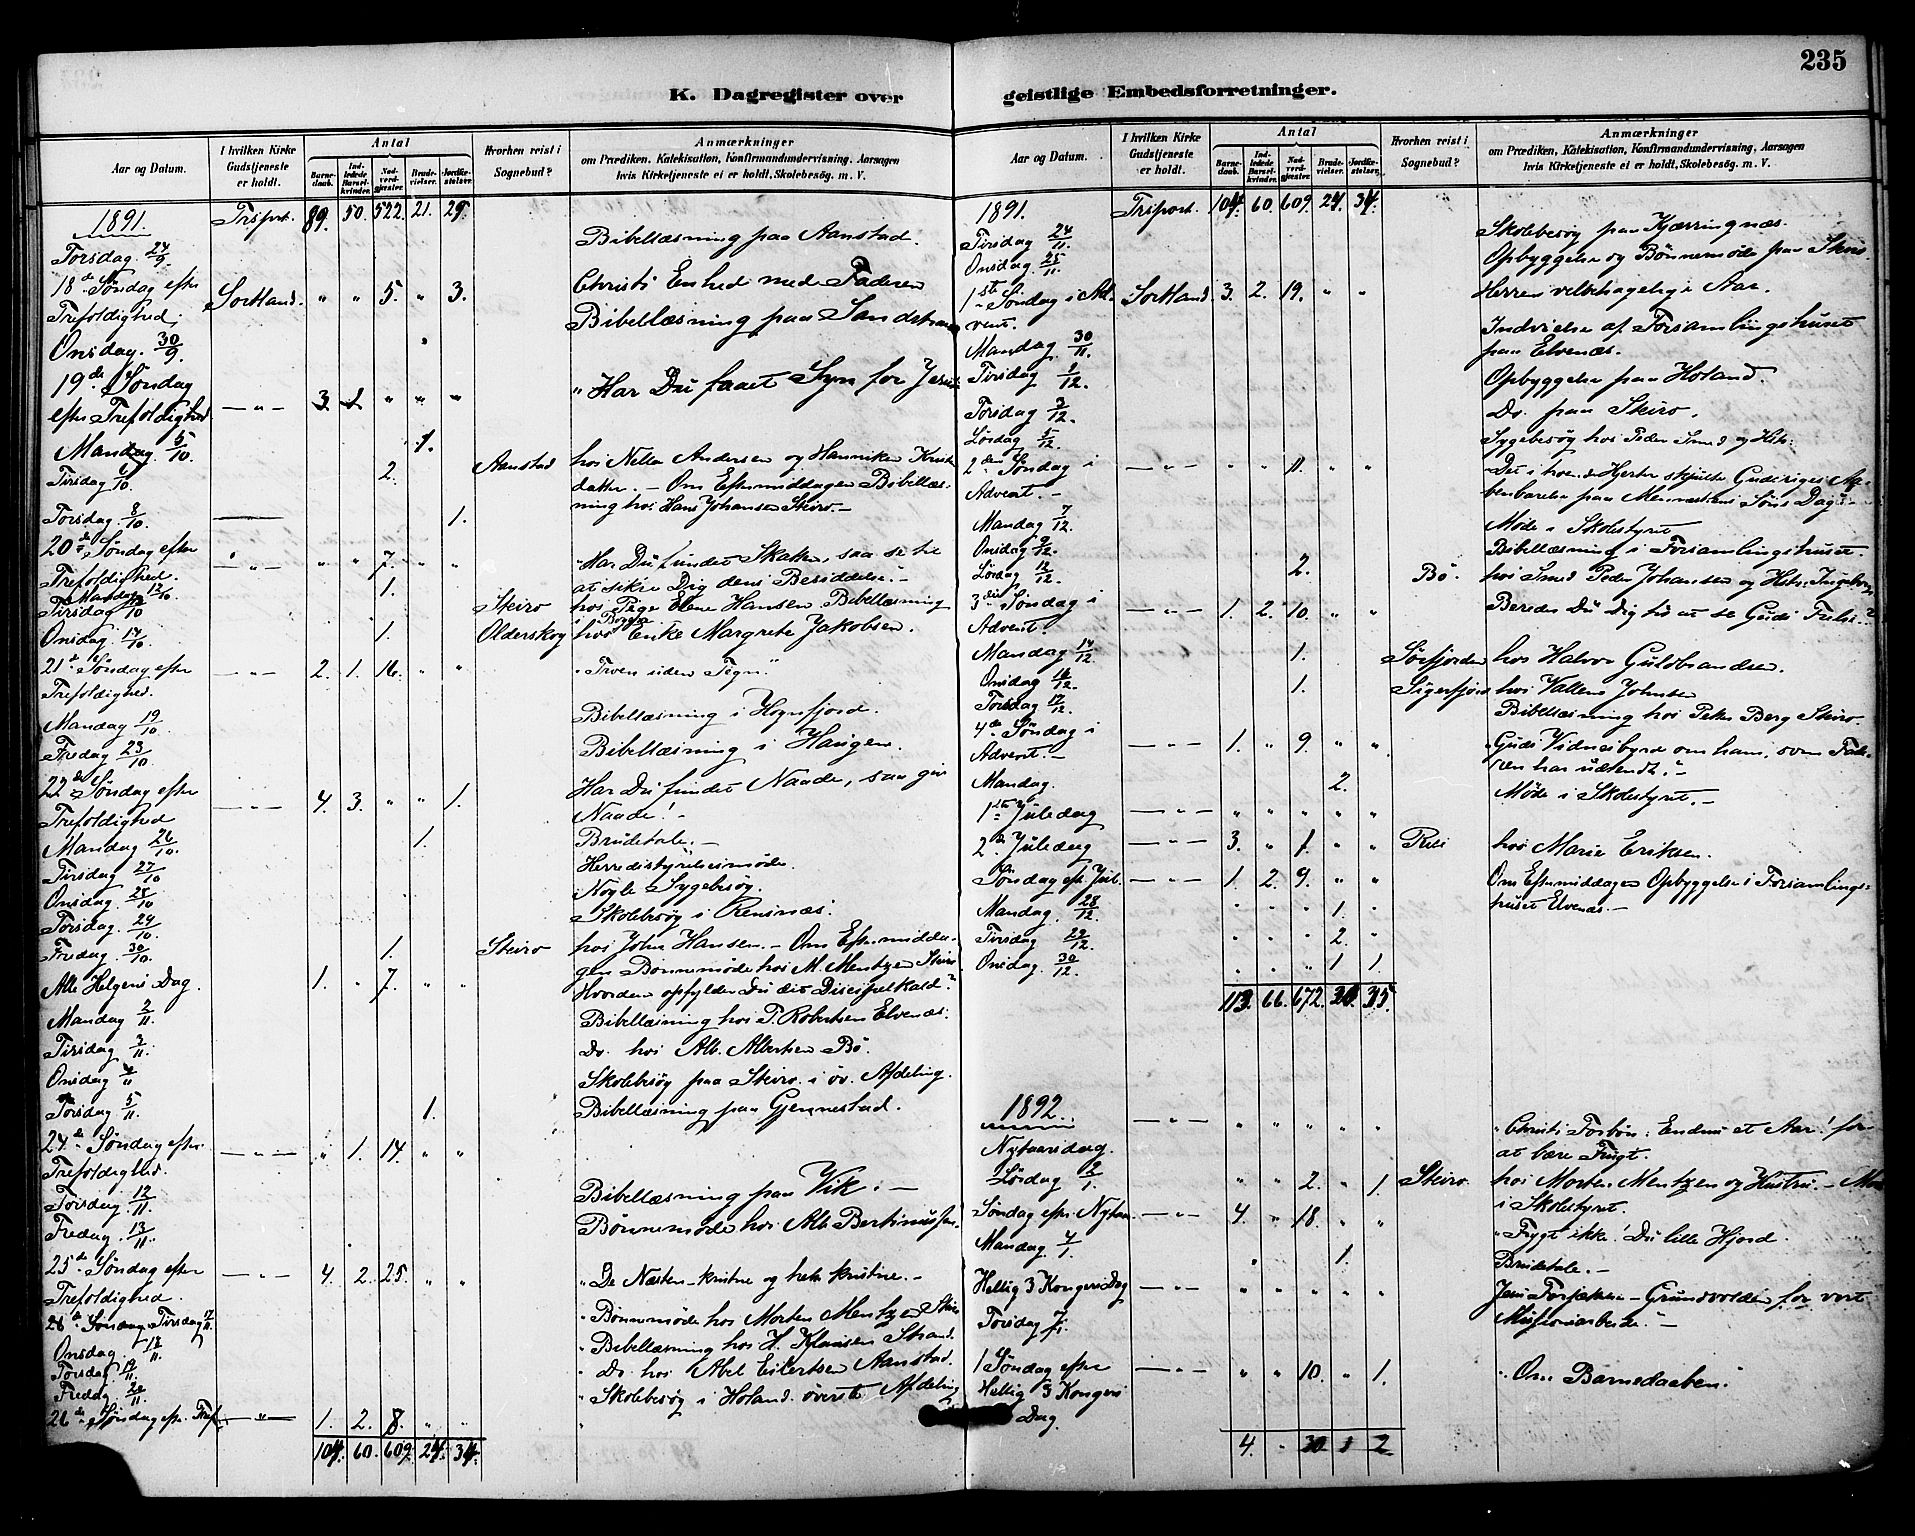 235
K. Dagregister over geistlige Embedsforretninger.
Aar og Datum. | I hvilken Kirke Gudstjeneste er holdt. | Antal | Barnedaab. | Indledede Barselkvinder. | Nadverdgjæster. | Brudevielser. | Jordfæstelser. | Hvorhen reist i Sognebud? | Anmærkninger om Prædiken, Katekisation, Konfirmandundervisning, Aarsagen hvis Kirketjeneste ei er holdt, Skolebesøg. m. V.
1891. Trsport. 89. 50. 522. 21. 25.
Torsdag 24/9. Bibellæsning paa Aanstad.
18de Søndag efter Trefoldighed. Sortland. " " 5. " 3. Christi Enhed med Faderen
Onsdag. 30/9. Bibellæsning paa
19de Søndag efter Trefoldighed — " — 3. 1. " " " "Har Du faaet Syn for
Mandag. 5/10. 1.
Tirsdag 6/10. 2. Aanstad hos Andersen og
datter. — Om Eftermiddagen Bibellæsning hos Hans Johansen Skiro —
Torsdag. 8/10. 1.
20de Søndag efter Trefoldighed. — " — " " 7. " " "Har Du fundet Skatten, saa se til at sikre Dig dens Besiddelse."—
Mandag 12/10 1.
Tirsdag 13/10 Skiro hos Pige Elene Hansen. Bibellæsning
Onsdag. 14/10. 1. Olderskog hos Enke Margrete Jakobsen.
21de Søndag efter Trefoldighed. — " — 2. 1. 16. " " "Troen uden Tegn"
Mandag 19/10. Bibellæsning i Hognfjord.
Fredag 23/10 Bibellæsning i Haugen.
22de Søndag efter Trefoldighed — " — 4. 3. " " 1. Har Du fundet Naade, saa giv Naade! —
Mandag 26/10. 1. Brudetale. —
Tirsdag 27/10 Herredsstyrelsesmøde.
Onsdag 28/10 Nogle Sygebesøg.
Torsdag. 29/10. Skolebesøg i Rensnæs.
Fredag. 30/10. 1. Skiro hos John Hansen. — Om Eftermiddagen Bønnemøde hos M. Mentzen Skiro
Alle Helgens Dag. 1. " 7. " " Hvordan opfylder Du dit Discipelkald?
Mandag 2/11. Bibellæsning hos P. Robertsen Elvenæs.
Tirsdag 3/11. Do. hos Alb. Albertsen Bø.
Onsdag 4/11 Skolebesøg paa Skiro i øv. Afdeling.
Torsdag 5/11. 1. Bibellæsning paa Gjennestad.
24de Søndag efter Trefoldighed. — " — " 1. 14. " "
Torsdag 12/11. Bibellæsning paa Vik. —
Fredag. 13/11. Bønnemøde hos Alb.
25de Søndag efter Trefoldighed. — " — 4. 2. 25. " " "De Næsten-kristne og helt kristne. —
26de Søndag Tirsdag 17/11. "Bønnemøde hos Morten Mentzen Skiro
Onsdag. 18/11. "Bibellæsning hos H. Klausen Strand.
Torsdag 19/11. "Do. hos Abel Eilertsen Aanstad.
Fredag. 20/11. "Skolebesøg i Holand øverste Afdeling
26de Søndag eft. Tref. — " — 1. 2. 8. " "
104. 60. 609. 24. 34.
Aar og Datum. | I hvilken Kirke Gudstjeneste er holdt. | Antal | Barnedaab. | Indledede Barselkvinder. | Nadverdgjæster. | Brudevielser. | Jordfæstelser. | Hvorhen reist i Sognebud? | Anmærkninger om Prædiken, Katekisation, Konfirmandundervisning, Aarsagen hvis Kirketjeneste ei er holdt, Skolebesøg. m. V.
1891. Trsport. 104. 60. 609. 24. 34.
Tirsdag 24/11. Skolebesøg paa Kjærringnæs.
Onsdag 25/11. Opbyggelse og Bønnemøde paa Skiro.
1ste Søndag i Advent. Sortland 3. 2. 19. " " Herrens velbehagelige Aar.
Mandag 30/11. Indvielse af Forsamlingshuset paa Elvenæs.
Tirsdag 1/12. Opbyggelse paa Holand.
Torsdag 3/12. Do. paa Skiro.
Lørdag 5/12. Sygebesøg hos Peder Smed og
2den Søndag i Advent. — — " — " " 11. " " Det i Hjerter skjulte Gudsriges Aabenbarelse paa Menneskens Søns Dag! —
Mandag 7/12. Møde i Skolestyret
Onsdag 9/12. Bibellæsning i Forsamlingshuset.
Lørdag 12/12. 2. Bø. hos Smed Peder Johansen og
3die Søndag i Advent. — " — 1. 2. 10. " " Bereder Du Dig til at se Guds Frelse?
Mandag 14/12. 1. Sørfjorden hos Halvor Guldbrandsen.
Onsdag 16/12. 1. Sigerfjord hos Johnsen
Torsdag 17/12. Bibellæsning hos Peter Berg Skiro
4de Søndag i Advent. — — " — 1. " 9. " " "Guds Vidnesbyrd om ham, som Faderen har udsendt."—
Mandag. 2. Møde i Skolestyret. —
1ste Juledag — " — " " " " "
2den Juledag — " — 3. " 1. " " hos Marie Eriksen.
Søndag eft. Jul. — " — 1. 2. 9. " " Om Eftermiddagen Opbyggelse i Forsamlingshuset Elvenæs. —
Mandag. 28/12. " " " 1. "
Tirsdag 29/12. " " " 2. "
Onsdag 30/12. " " " 1 1.
113. 66. 672. 30. 35.
1892.
Nytaarsdag. — " — " " " " " "Christi Forbøn: Endnu et Aar! for at bære Frugt.
Lørdag 2/1. " " 2. " 1. Skiro. hos Morten Mentzen og Hustru. — Møde i Skolestyret.
Søndag eft. Nytaar — " — 4. " 18. " " "Frygt ikke! Du lille Hjord.
Mandag. 4/1. " 1. Brudetale. —
Hellig 3 Kongers Dag — " — " " " " "
Torsdag 7/1. Grundvolden for vort Missionsarbeide."—
1 Søndag efter Hellig 3 Kongers Dag. — " — " " 10. " 1. "Om Barnedaaben.
4. " 30 1 2.